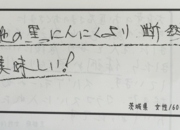 他の黒にんにくより断然
美味しい!
茨城県 女性/60